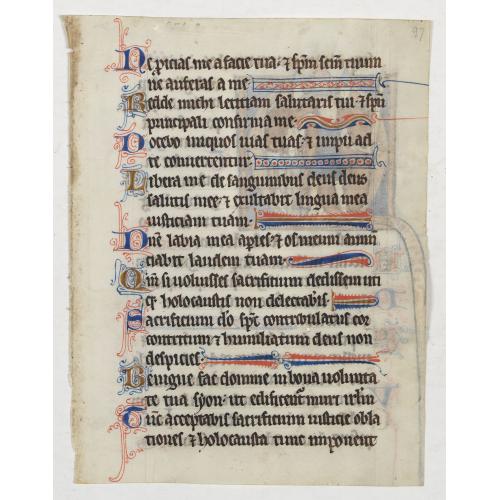 97
Ne proicias me a facie tua · ⁊ spm̄ scm̄ tuum
ne auferas a me
Redde michi leticiam salutaris tui · ⁊ spū
principali confirma me ·
Docebo iniquos uias tuas · ⁊ impii ad
te conuertentur ·
Libera me de sanguinibus deus deus
salutis mee · ⁊ exultabit lingua mea
iusticiam tuam ·
Dn̄e labia mea apies · ⁊ os meum annū
ciabit laudem tuam ·
Qm̄ si uoluisses sacrificium dedissem uti
qꝫ holocaustis non delectabis ·
Sacrificium do sp̄c contribulatus cor
contritum ⁊ humiliatum deus non
despicies ·
Benigne fac domine in bona uolunta
te tua syon · ut edificent̄ muri irl̄m
Tūc acceptabis sacrificium iusticie obla
tiones ⁊ holocausta tunc imponent